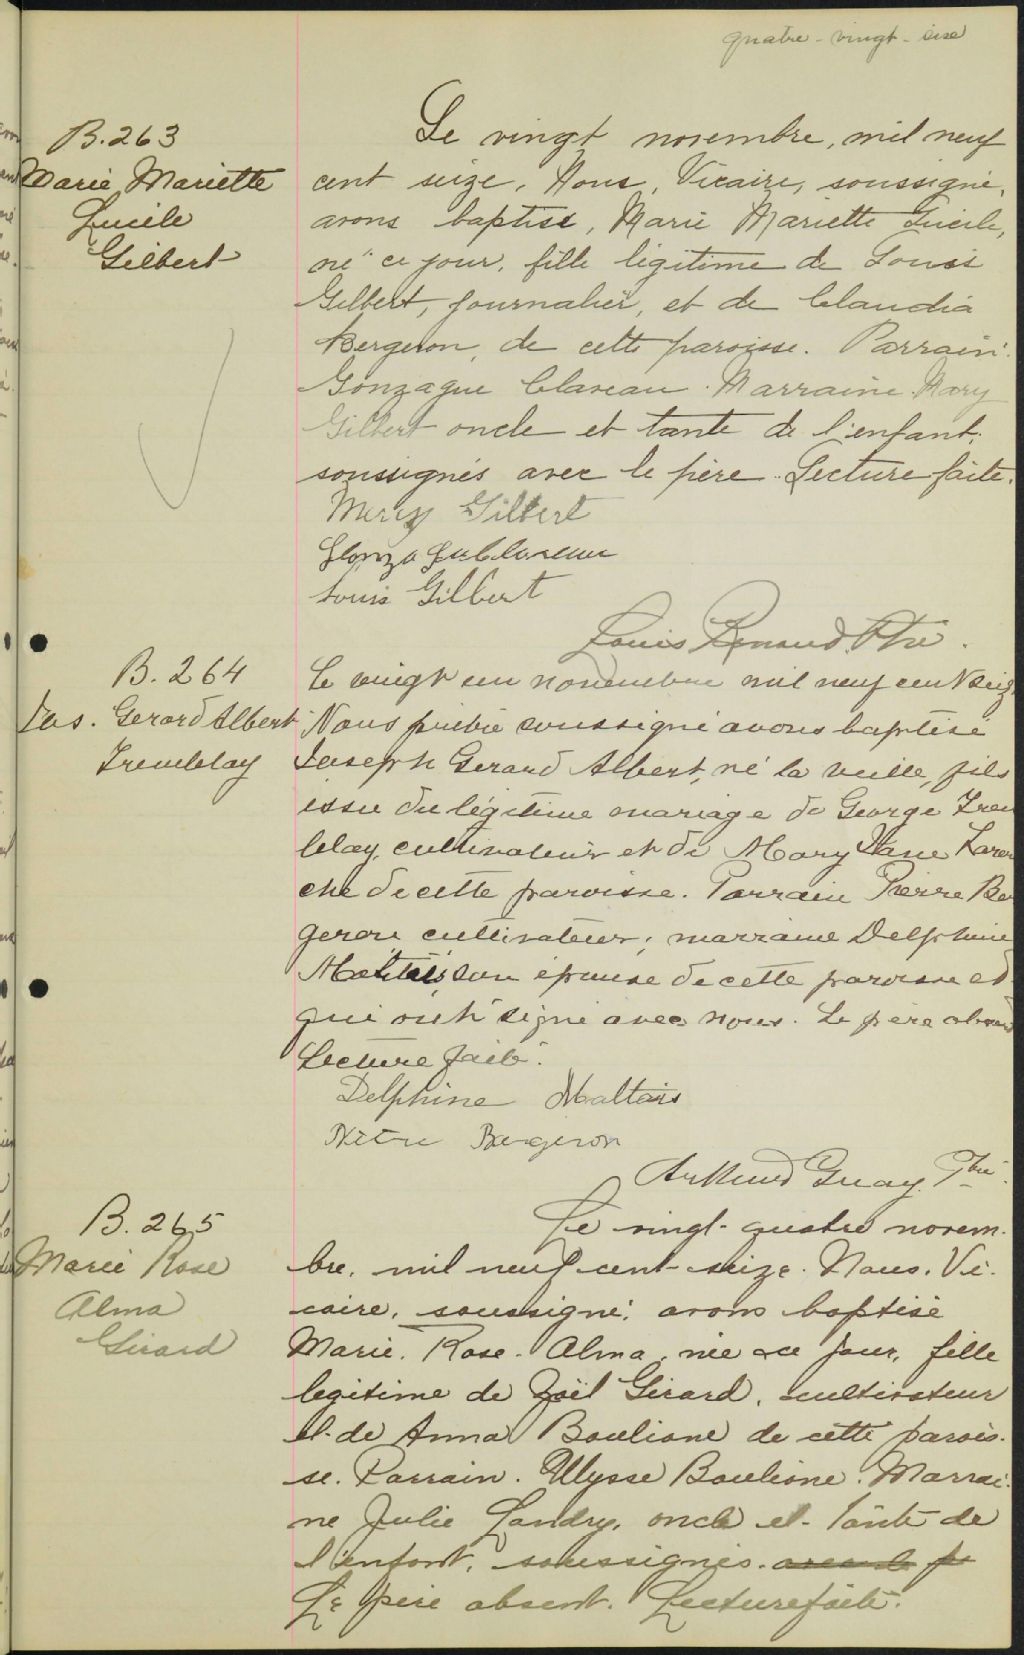 quatre-vingt-six
B. 263
Marie Mariette
Lucile
Gilbert
Le vingt novembre, mil neuf
cent seize, Nous, Vicaire, soussigné,
avons baptisé, Marie Mariette Lucile,
né ce jour, fille légitime de Louis
Gilbert, journalier, et de Claudia
Bergeron, de cette paroisse. Parrain:
Gonzague Claveau. Marraine Mary
Gilbert oncle et tante de l'enfant,
soussignés avec le père. Lecture faite.
Mercy Gilbert
Gonzague Claveau
Louis Gilbert
Louis Renaud Ptre.
B. 264
Jos. Gerard Albert
Tremblay
Le vingt un novembre mil neuf cent seize
Nous prêtre soussigné avons baptisé
Joseph Gerard Albert, né la veille, fils
issu du légitime mariage de George Trem
blay, cultivateur et de Mary Jane Larou
che de cette paroisse. Parrain Pierre Ber
geron, cultivateur; marraine Delphine
Maltais, son épouse de cette paroisse et
qui ont signé avec nous. Le père absent
Lecture faite.
Delphine Maltais
Pierre Bergeron
Arthur Guay Ptre.
B. 265
Marie Rose
Alma
Girard
Le vingt-quatre novem-
bre, mil neuf cent-seize. Nous. Vi-
caire, soussigné, avons baptisé
Marie. Rose. Alma, née ce jour, fille
légitime de Joël Girard, cultivateur
et de Anna Bouliane de cette parois-
se. Parrain. Ulysse Bouliane. Marrai-
ne Julie Landry, oncle et tante de
l'enfant, soussignés. avec le pe
Le père absent. Lecture faite.